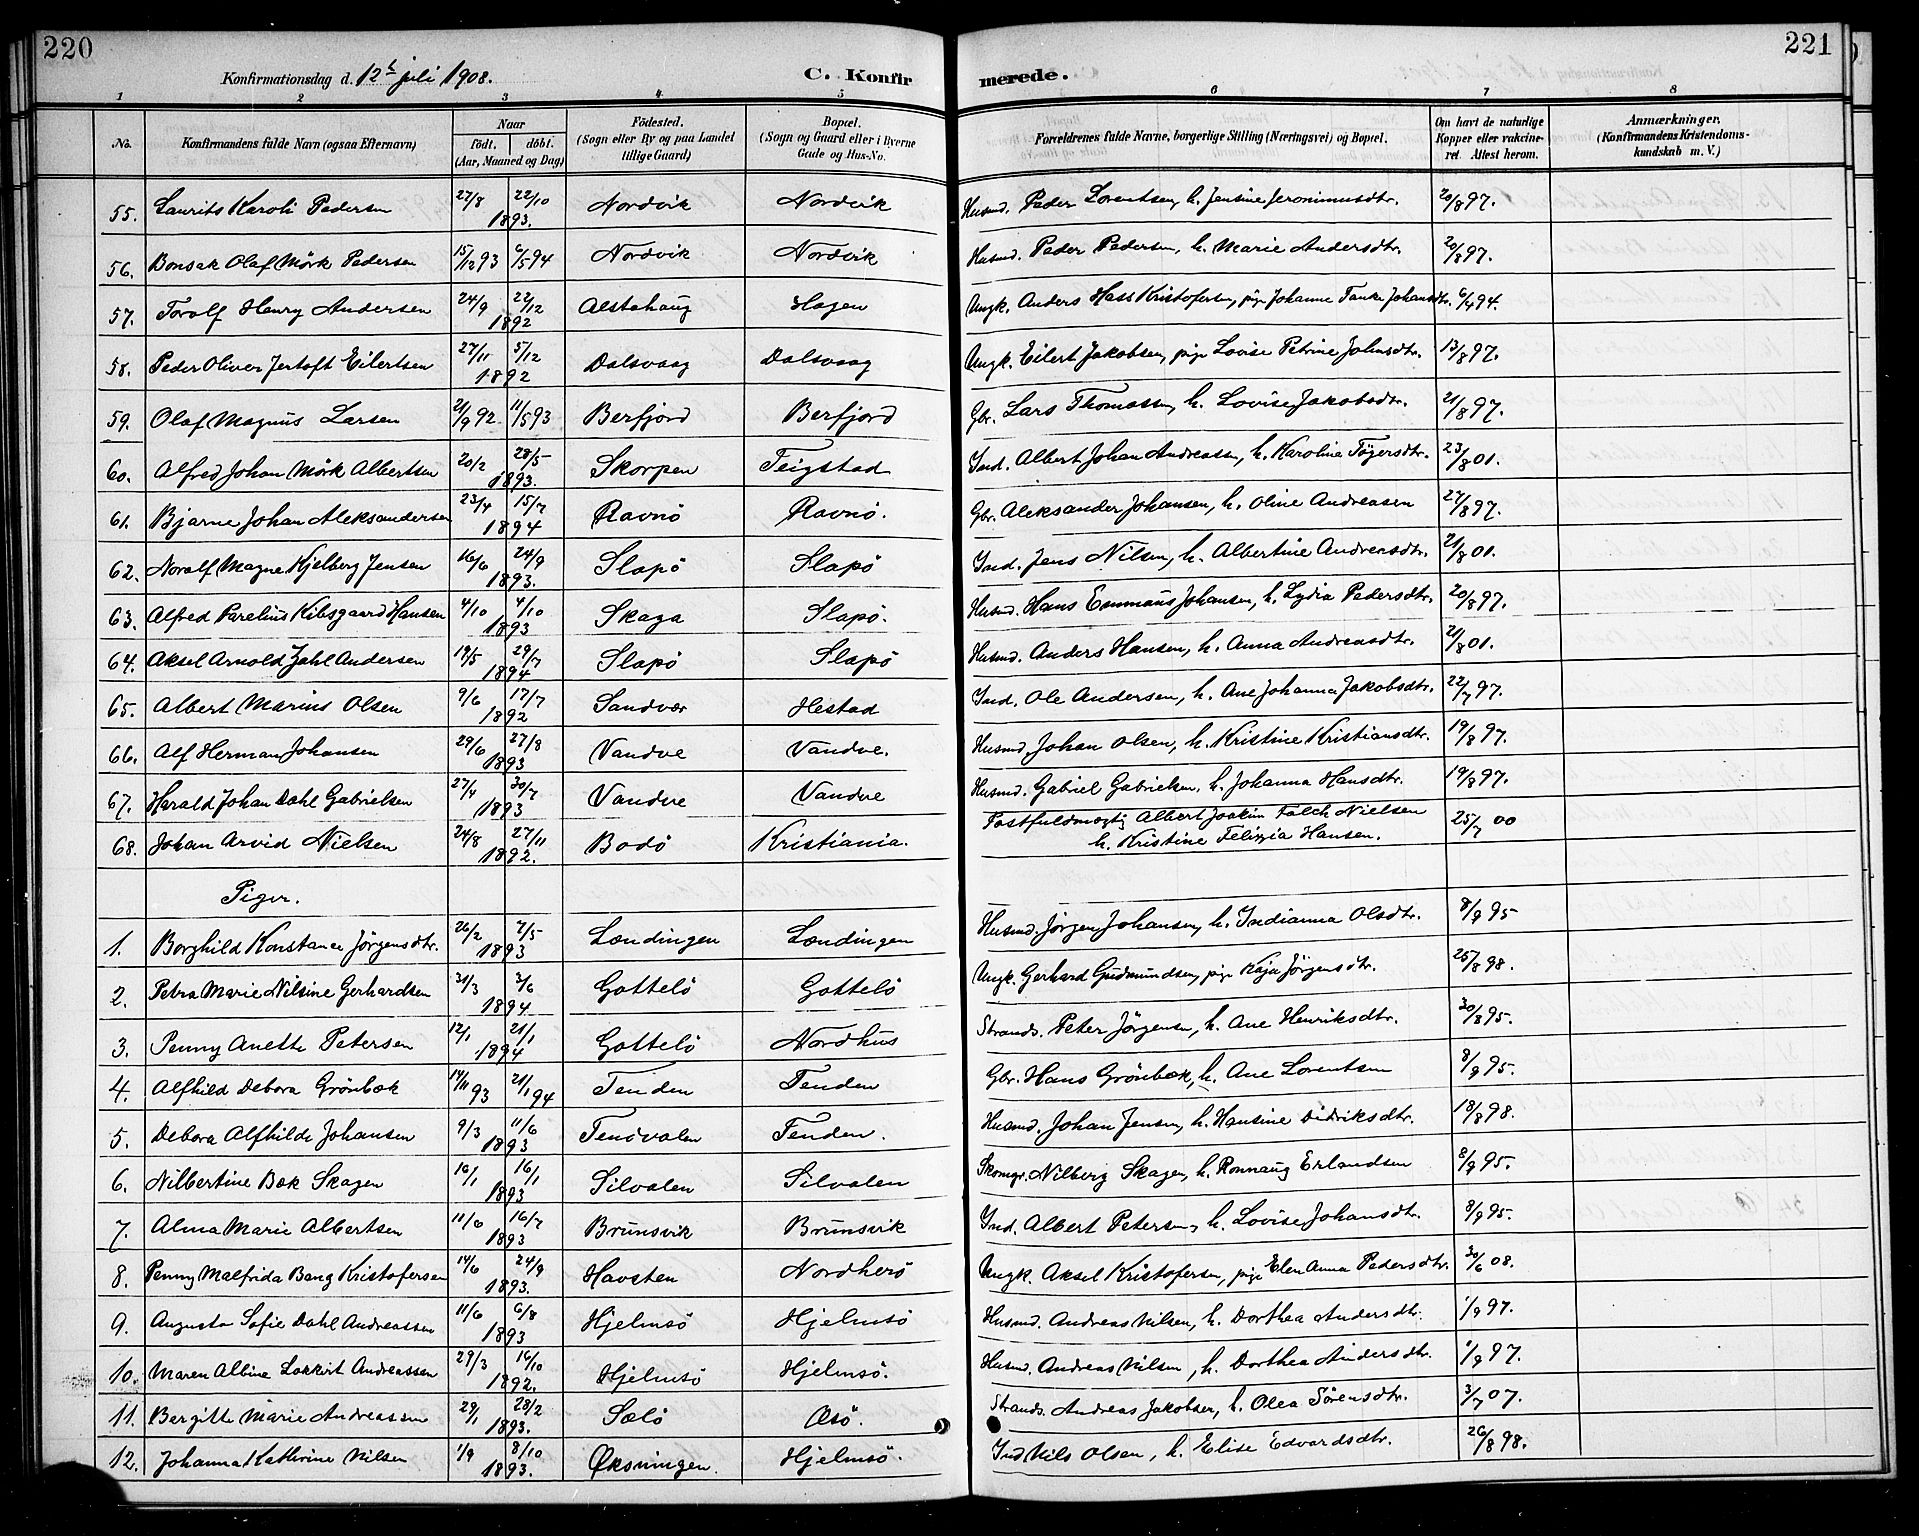 220
221
Konfirmationsdag d. 12te juli 1908.
C. Konfirmerede.
1 2 3 4 5 6 7 8
No. Konfirmandens fulde Navn (ogsaa Efternavn) Naar født. døbt. (Aar, Maaned og Dag) Fødested. (Sogn eller By og paa Landet tillige Gaard) Bopæl. (Sogn og Gaard eller i Byerne Gade og Hus-No. Forældrenes fulde Navne, borgerlige Stilling (Næringsvei) og Bopæl. Om havt de naturlige Kopper eller vakcineret. Attest herom. Anmærkninger. (Konfirmandens Kristendomskundskab m. V.)
55. Laurits Karoli Pedersen 27/8 22/10 1893. Nordvik Nordvik Husmd. Peder Lorentsen, h. Jensine Jeronimusdtr. 20/8 97.
56. Bonsak Olaf Mörk Pedersen 15/12 93 6/5 94 Nordvik Nordvik Husmd. Peder Pedersen, h. Marie Andersdtr. 20/8 97.
57. Toralf Henry Andersen 24/9 22/12 1892 Alstahaug Hagen Ungk. Anders Hass Kristofersen, pige Johanne Tanke Johansdtr. 6/4 94.
58. Peder Oliver Jertoft Eilertsen 27/11 5/12 1892 Dalsvaag Dalsvaag Ungk. Eilert Jakobsen, pige Lovise Petrine Johnsdtr. 13/8 97.
59. Olaf Magnus Larsen 21/9 92 11/5 93 Berfjord Berfjord Gbr. Lars Thomassen, h. Lovise Jakobsdtr. 21/8 97.
60. Alfred Johan Mörk Albertsen 20/2 28/5 1893. Skorpen Teigstad Ind. Albert Johan Andreassen, h. Karoline Tögersdtr. 23/8 01.
61. Bjarne Johan Aleksandersen 23/4 15/7 1894 Ravnö Ravnö. Gbr. Aleksander Johansen, h. Oline Andreasen 27/8 97.
62. Noralf Magne Kjelberg Jensen 16/6 24/9 1893. Slapö Slapö Ind. Jens Nilsen, h. Albertine Andreasdtr. 21/8 01.
63. Alfred Parelius Kibsgaard Hansen 4/10 4/10 1893 Skaga Slapö. Husmd. Hans Emmaus Johansen, h. Lydia Pedersdtr. 20/8 97.
64. Aksel Arnold Zahl Andersen 19/5 29/7 1894 Slapö Slapö Husmd. Anders Hansen, h. Anna Andreasdtr. 21/8 01.
65. Albert Marius Olsen 9/6 17/7 1892 Sandvær Hestad Ind. Ole Andersen, h. Ane Johanna Jakobsdtr. 22/7 97.
66. Alf Herman Johansen 29/6 27/8 1893 Vandve Vandve. Husmd. Johan Olsen, h. Kristine Kristiansdtr. 19/8 97.
67. Harald Johan Dahl Gabrielsen 27/4 30/7 1893 Vandve Vandve Husmd. Gabriel Gabrielsen, h. Johanna Hansdtr. 19/8 97.
68. Johan Arvid Nielsen 24/8 27/11 1892. Bodö Kristiania. Postfuldmægtig Albert Joakim Falch Nielsen
h. Kristine Felizia Hansen. 25/7 00
Piger.
1. Borghild Konstance Jörgensdtr. 26/2 7/5 1893 Lændingen Lændingen Husmd. Jörgen Johansen, h. Indianna Olsdtr. 8/9 95
2. Petra Marie Nilsine Gerhardsen 31/3 3/6 1894 Gottelö Gottelö Ungk. Gerhard Gudmundsen, pige Kaja Jörgensdtr. 25/8 98.
3. Penny Anette Petersen 12/1 21/1 1894 Gottelö Nordhus Strands. Peter Jörgensen, h. Ane Henriksdtr. 30/8 95.
4. Alfhild Debora Grönbæk 14/11 93 21/1 94 Tenden Tenden Gbr. Hans Grönbæk, h. Ane Lorentsen 8/9 95.
5. Debora Alfhilde Johansen 9/3 11/6 1893 Tenövalen Tenden. Husmd. Johan Jensen, h. Hansine Didriksdtr. 18/8 98.
6. Nilbertine Bæk Skagen 16/1 16/1 1893 Silvalen Silvalen Skomgr. Nilberg Skagen, h. Rønnaug Erlandsen 8/9 95.
7. Alma Marie Albertsen 11/6 16/7 1893 Brunsvik Brunsvik Ind. Albert Petersen, h. Lovise Johansdtr. 8/9 95.
8. Penny Malfrida Bang Kristofersen 14/6 24/9 1893. Havsten Nordherö Ungk. Aksel Kristofersen, pige Elen Anna Pedersdtr. 30/6 08.
9. Augusta Sofie Dahl Andreassen 11/6 6/8 1893 Hjelmsö Hjelmsö Husmd. Andreas Nilsen, h. Dorthea Andersdtr. 1/9 97.
10. Maren Albine Lokkert Andreassen 29/3 16/10 1892. Hjelmsö Hjelmsö. Husmd. Andreas Nilsen, h. Dorthea Andersdtr. 1/9 97.
11. Bergitte Marie Andreassen 29/1 28/2 1893. Sælö Asö. Strands. Andreas Jakobsen, h. Olea Sörensdtr. 3/7 07.
12. Johanna Kathrine Nilsen 1/9 8/10 1893. Øksningen. Hjelmsö. Ind Nils Olsen, h. Elise Edvardsdtr. 26/8 98.